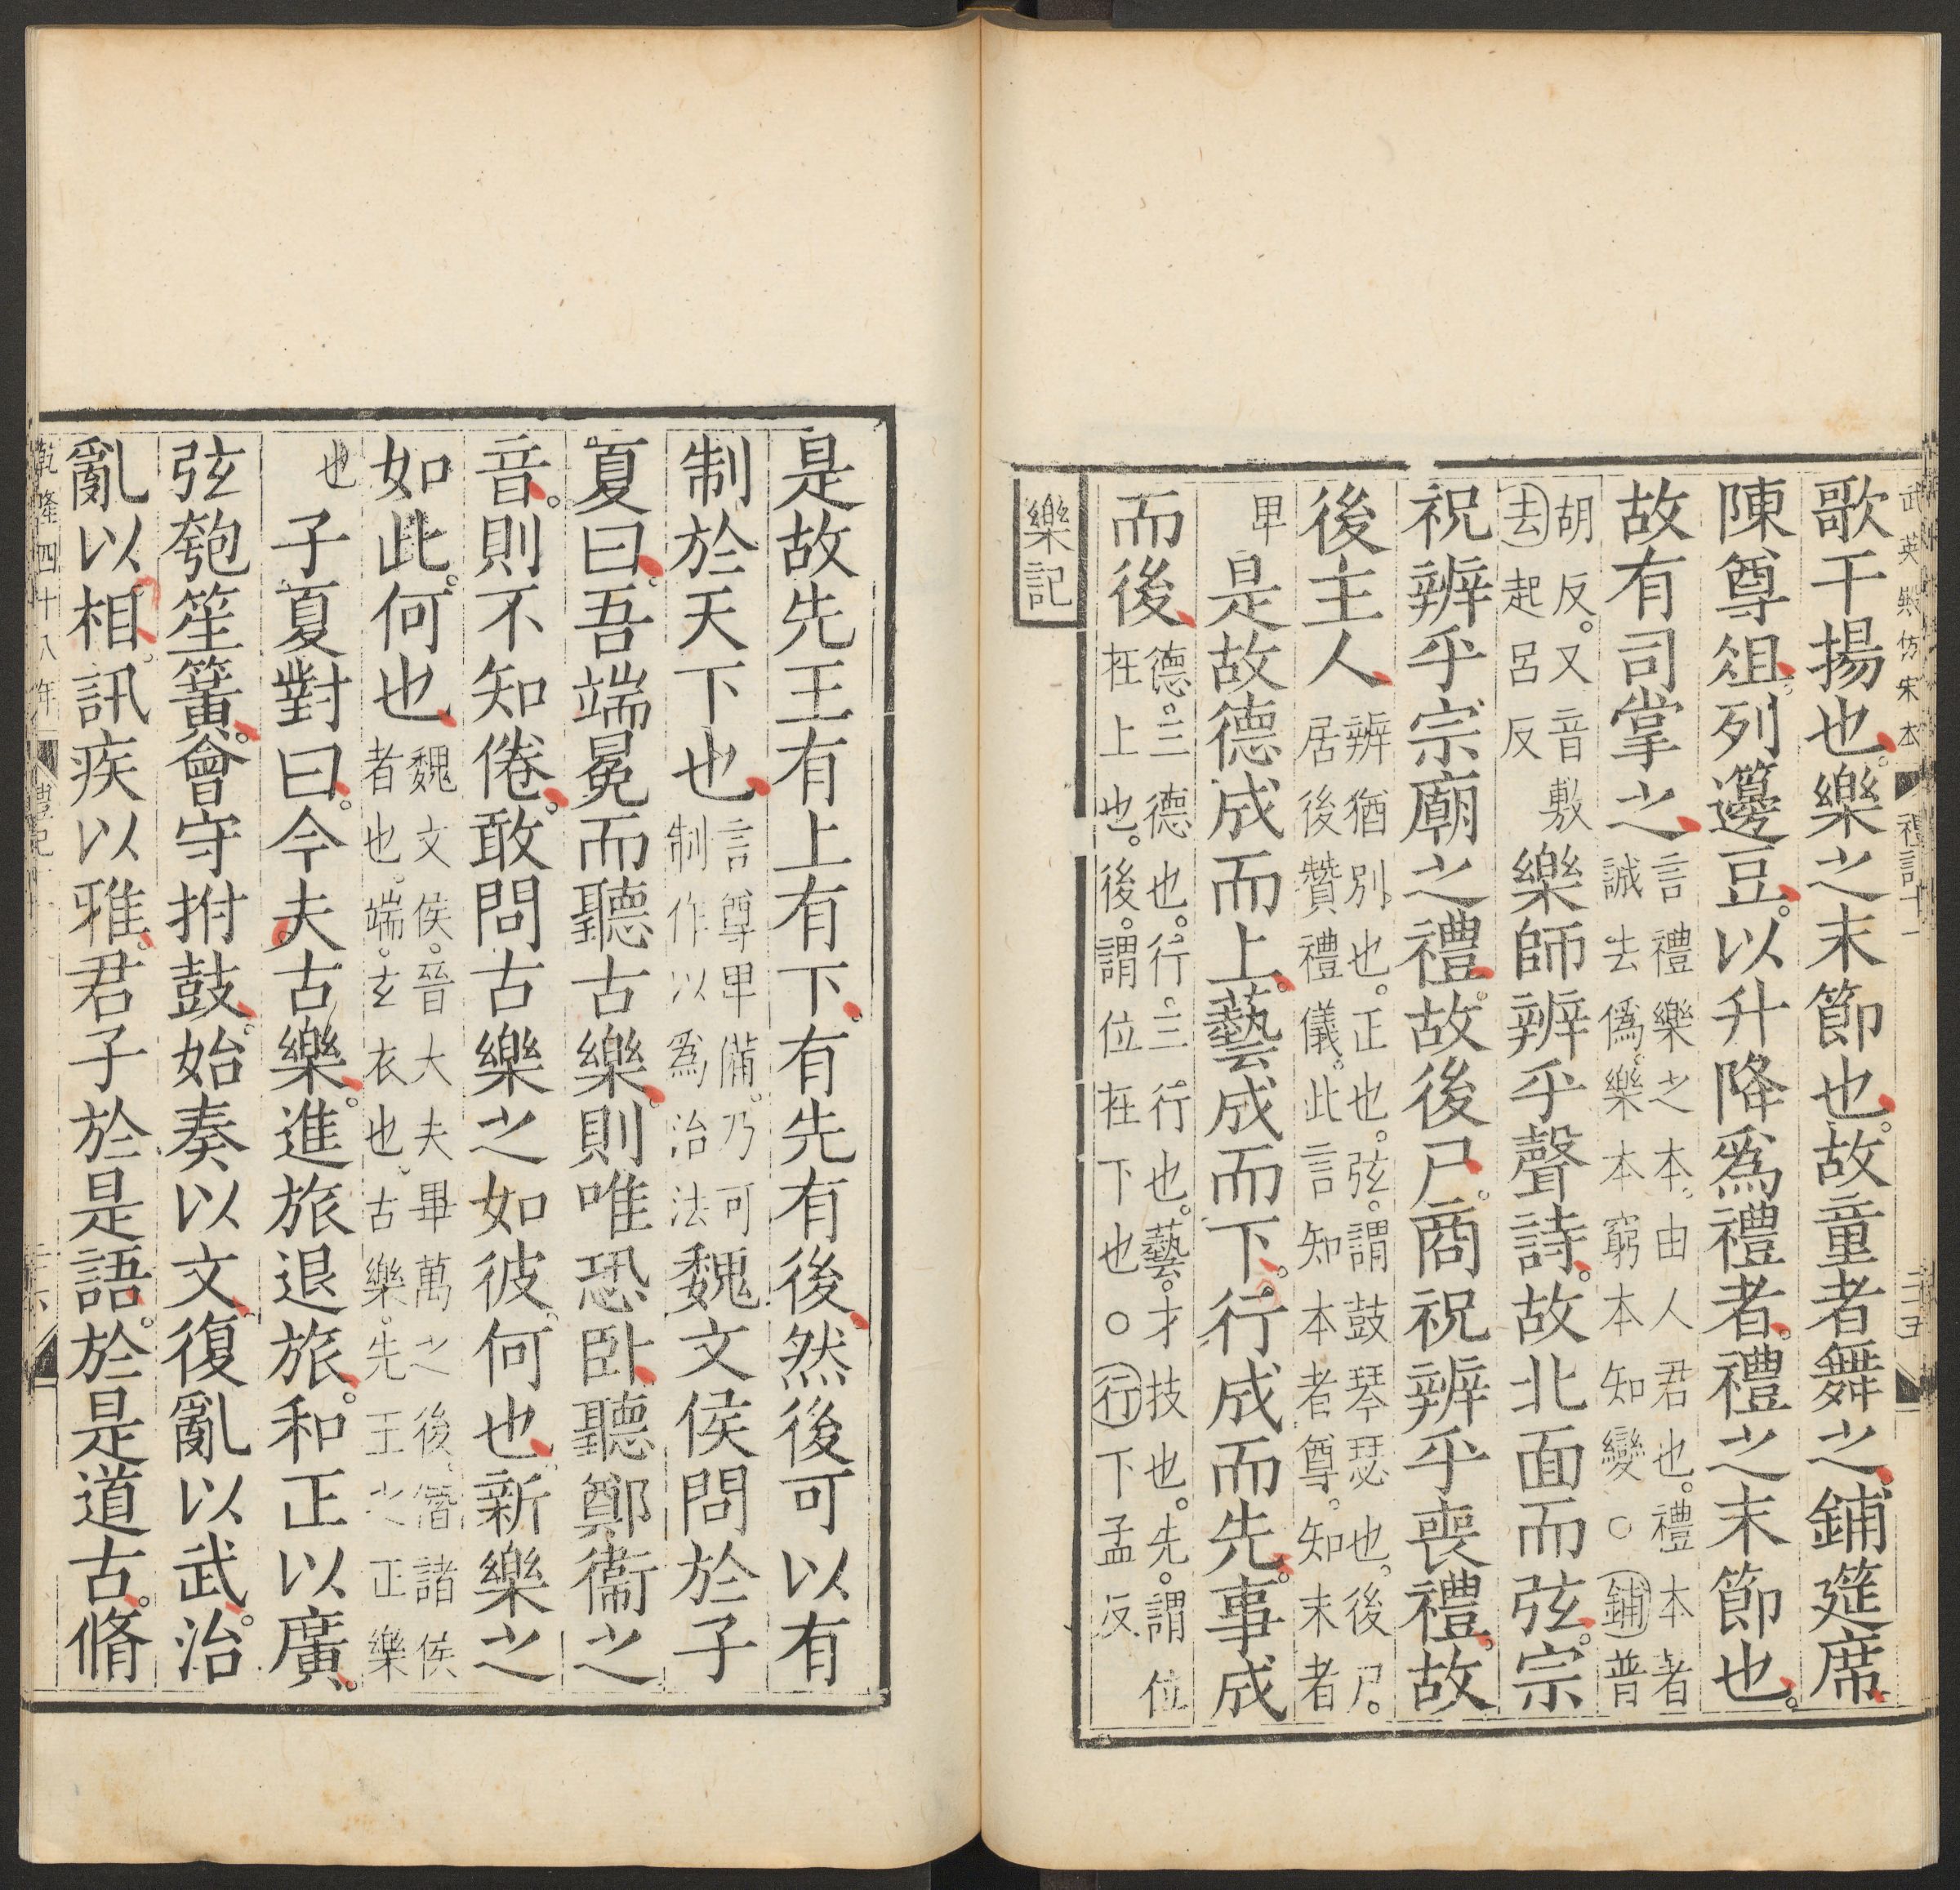 武英殿仿宋本 禮記十一 三十五
歌干揚也。樂之末節也。故童者舞之。鋪筵席。
陳尊俎。列籩豆。以升降爲禮者。禮之末節也。
故有司掌之。言禮樂之本。由人君也。禮本著誠去僞。樂本窮本知變○鋪普
胡反。又音敷去起呂反樂師辨乎聲詩。故北面而弦。宗
祝辨乎宗廟之禮。故後尸。商祝辨乎喪禮。故
後主人。辨猶別也。正也。弦。謂鼓琴瑟也。後尸。居後贊禮儀。此言知本者尊。知末者
卑是故德成而上。藝成而下。行成而先。事成
而後。德。三德也。行。三行也。藝。才技也。先。謂位在上也。後。謂位在下也○行下孟反
樂記
是故先王有上有下。有先有後。然後可以有
制於天下也。言尊卑備。乃可制作以爲治法魏文侯問於子
夏曰。吾端冕而聽古樂。則唯恐卧。聽鄭衞之
音。則不知倦。敢問古樂之如彼。何也。新樂之
如此。何也。魏文侯。晉大夫畢萬之後。僭諸侯者也。端。玄衣也。古樂。先王之正樂
也子夏對曰。今夫古樂。進旅退旅。和正以廣。
弦匏笙簧。會守拊鼓。始奏以文。復亂以武。治
亂以相。訊疾以雅。君子於是語。於是道古。脩
乾隆四十八年 禮記十一